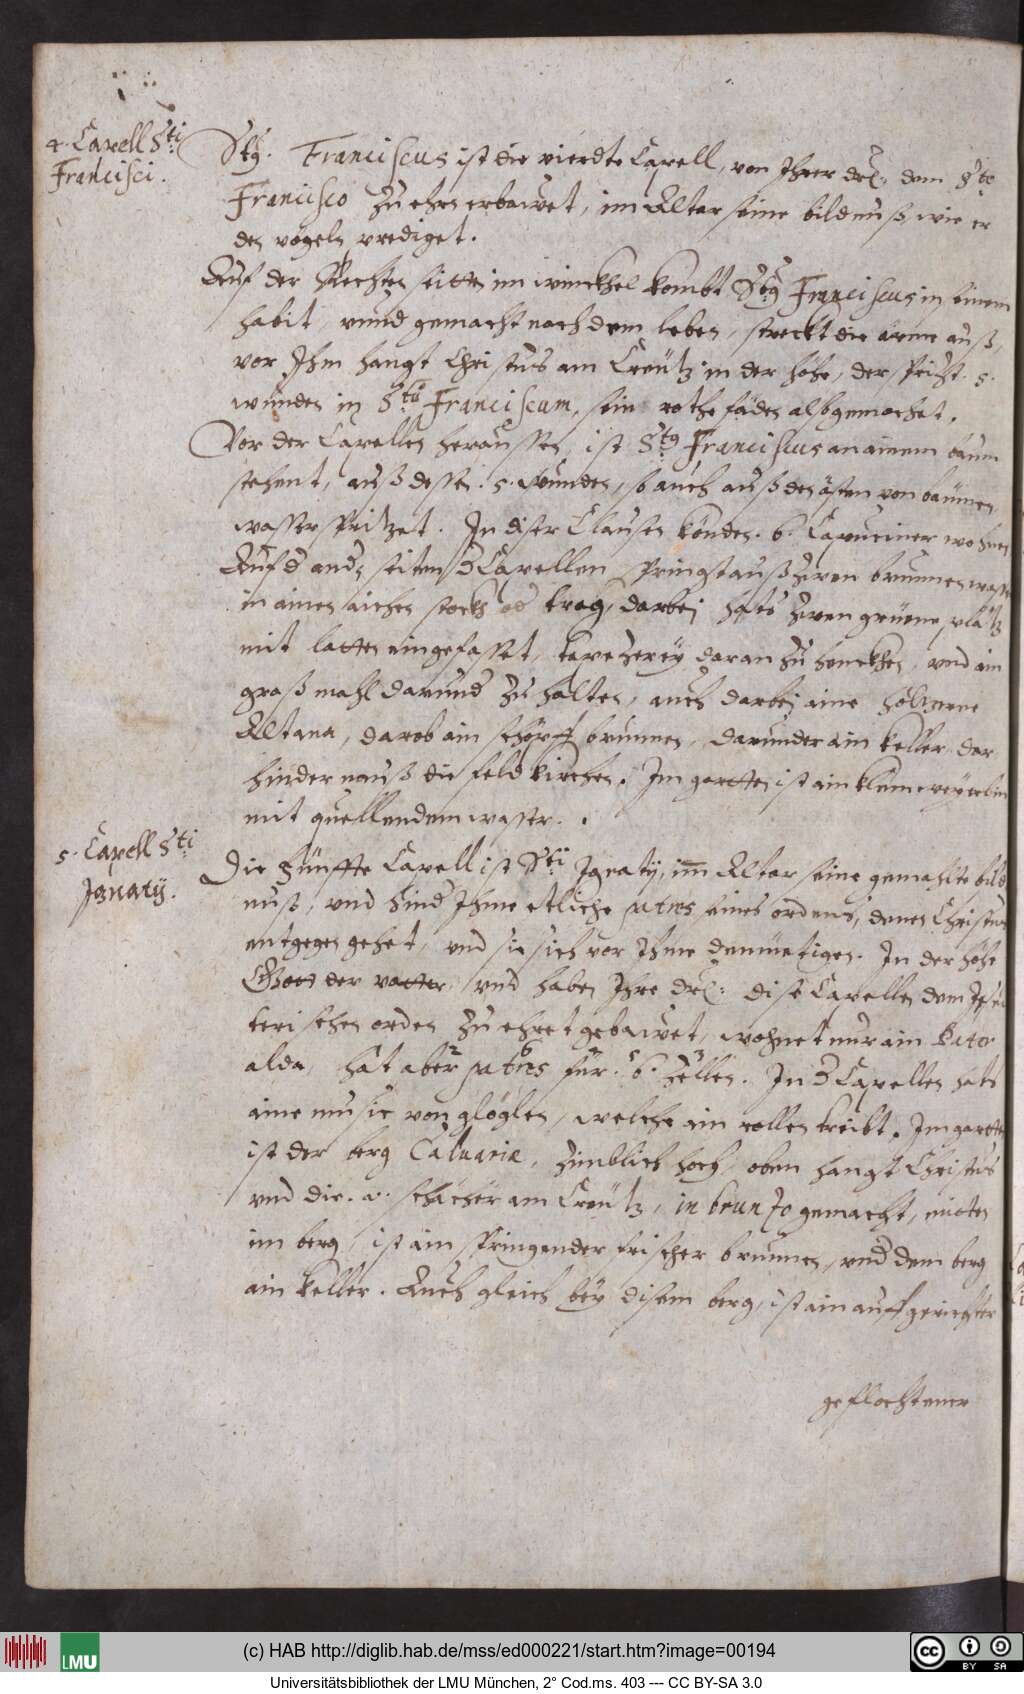 4. Capell S.ti
Francisci.
Stus. Franciscus ist die vierdte Capell, von Ihrer drl: dem S.to
Francisco zu ehrn erbawet, im Altar seine bildnuß, wie er
den vögeln prediget.
Auf der Rechten seitten im winckhel kombt Stus Franciscus in seinem
habit, rund gemacht nach dem leben, streckt die ärme auß,
vor Ihm hangt Christus am Creütz in der höhe, der spritzt .5.
wunden in S.tum Franciscum, sein rothe fäden also gemachet.
Vor der Capellen heraussen, ist Stus Franciscus an ainem baum
stehent, auß dessen .5. wunden, so auch auß den ästen von bäumen
wasser spritzet. In diser Clausen könden .6. Capuciner wohnen
Auf d andn seiten d Capellen springt auß zwen brunnen wasser
in ainen aichen stockh od trog, darbej hats zwen grüene plätz
mit latten eingefasset, tapezerey daran zu henckhen, und ain
graß mahl darund zu halten, auch darbej aine höltzerne
Altana, darob ain schöpff brunnen, darunder ain keller, dar
hinder nauß die feld kirchen. Im gartten ist ain klein weyerlin
mit quellendem wasser.
5. Capell S.ti
Ignatij.
Die Fünffte Capell ist S.ti Ignatij, im Altar seine gemahlte bild
nuß, und hind Ihme etliche patres seines ordens, denen Christus
entgegen gehet, und sie sich vor Ihme demüetigen. In der höhe
Gott der vatter, und haben Ihre drl: dise Capellen dem Jesui
terischen orden zu ehren gebawet, wohnet nur ain Pater
alda, hat aber patres für .6. zellen. In d Capellen hats
aine music von glöglen, welche ain rollen treibt. Im gartten
ist der berg Calvariæ, zimblich hoch, oben hangt Christus
und die .2. schächer am Creütz, in brunzo gemacht, unden
im berg, ist ain springender frischer brunnen, und dem berg
ain keller. Auch gleich bey disem berg, ist ain auffgerichter
geflochtener
(c) HAB http://diglib.hab.de/mss/ed000221/start.htm?image=00194
LMU
CC BY SA
Universitätsbibliothek der LMU München, 2° Cod.ms. 403 --- CC BY-SA 3.0